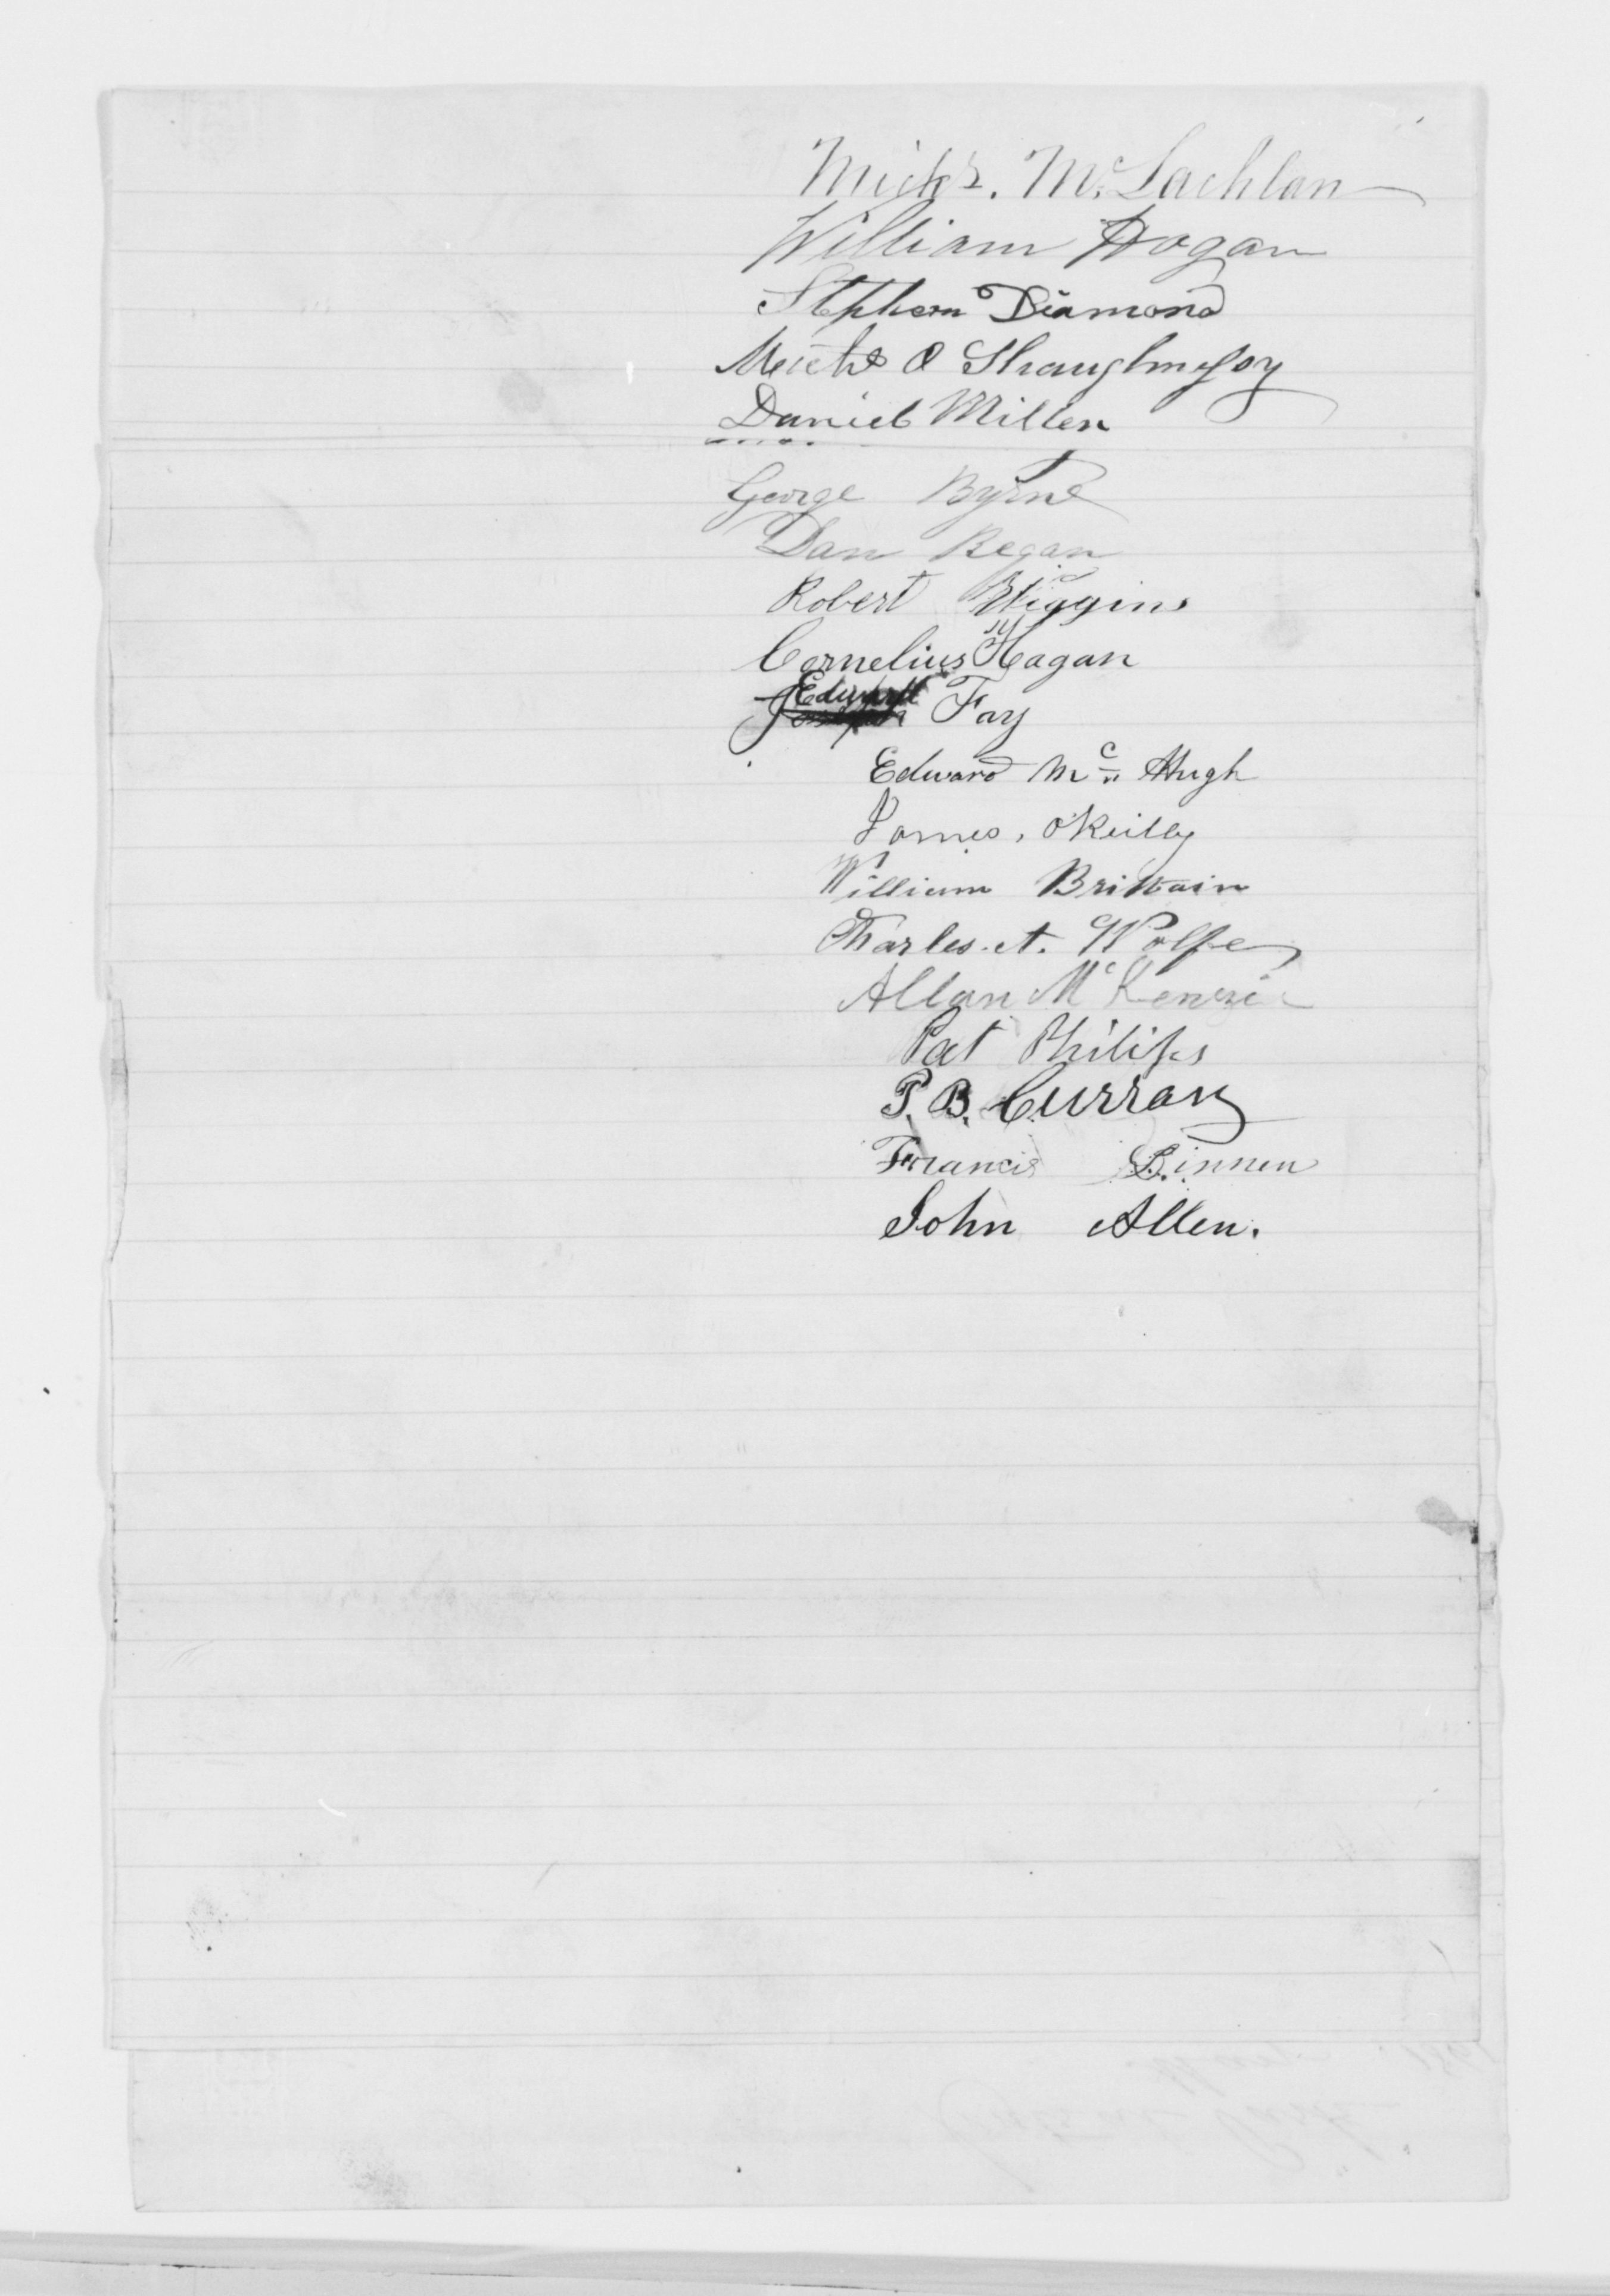 Michl. McLachlan
William Hogan
Stephen Diamond
Michl O Shaughnessy
Daniel Miller
George Byrne
Dan Regan
Robert Higgins
Cornelius Hagan
Edward Fay
Edward Mc Hugh
James, O'Reilly
William Brittain
Charles A. Wolfe
Allan McKenzie
Pat Philips
P. B. Curran
Francis
John Allen.